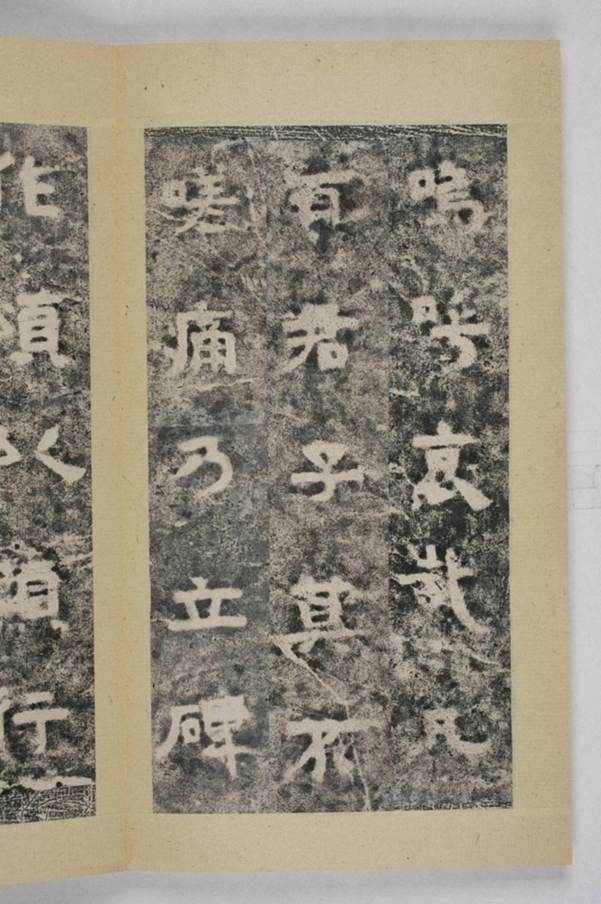 嗚呼哀哉凡
百君子莫不
嗟痛乃立碑
作頌以顯行